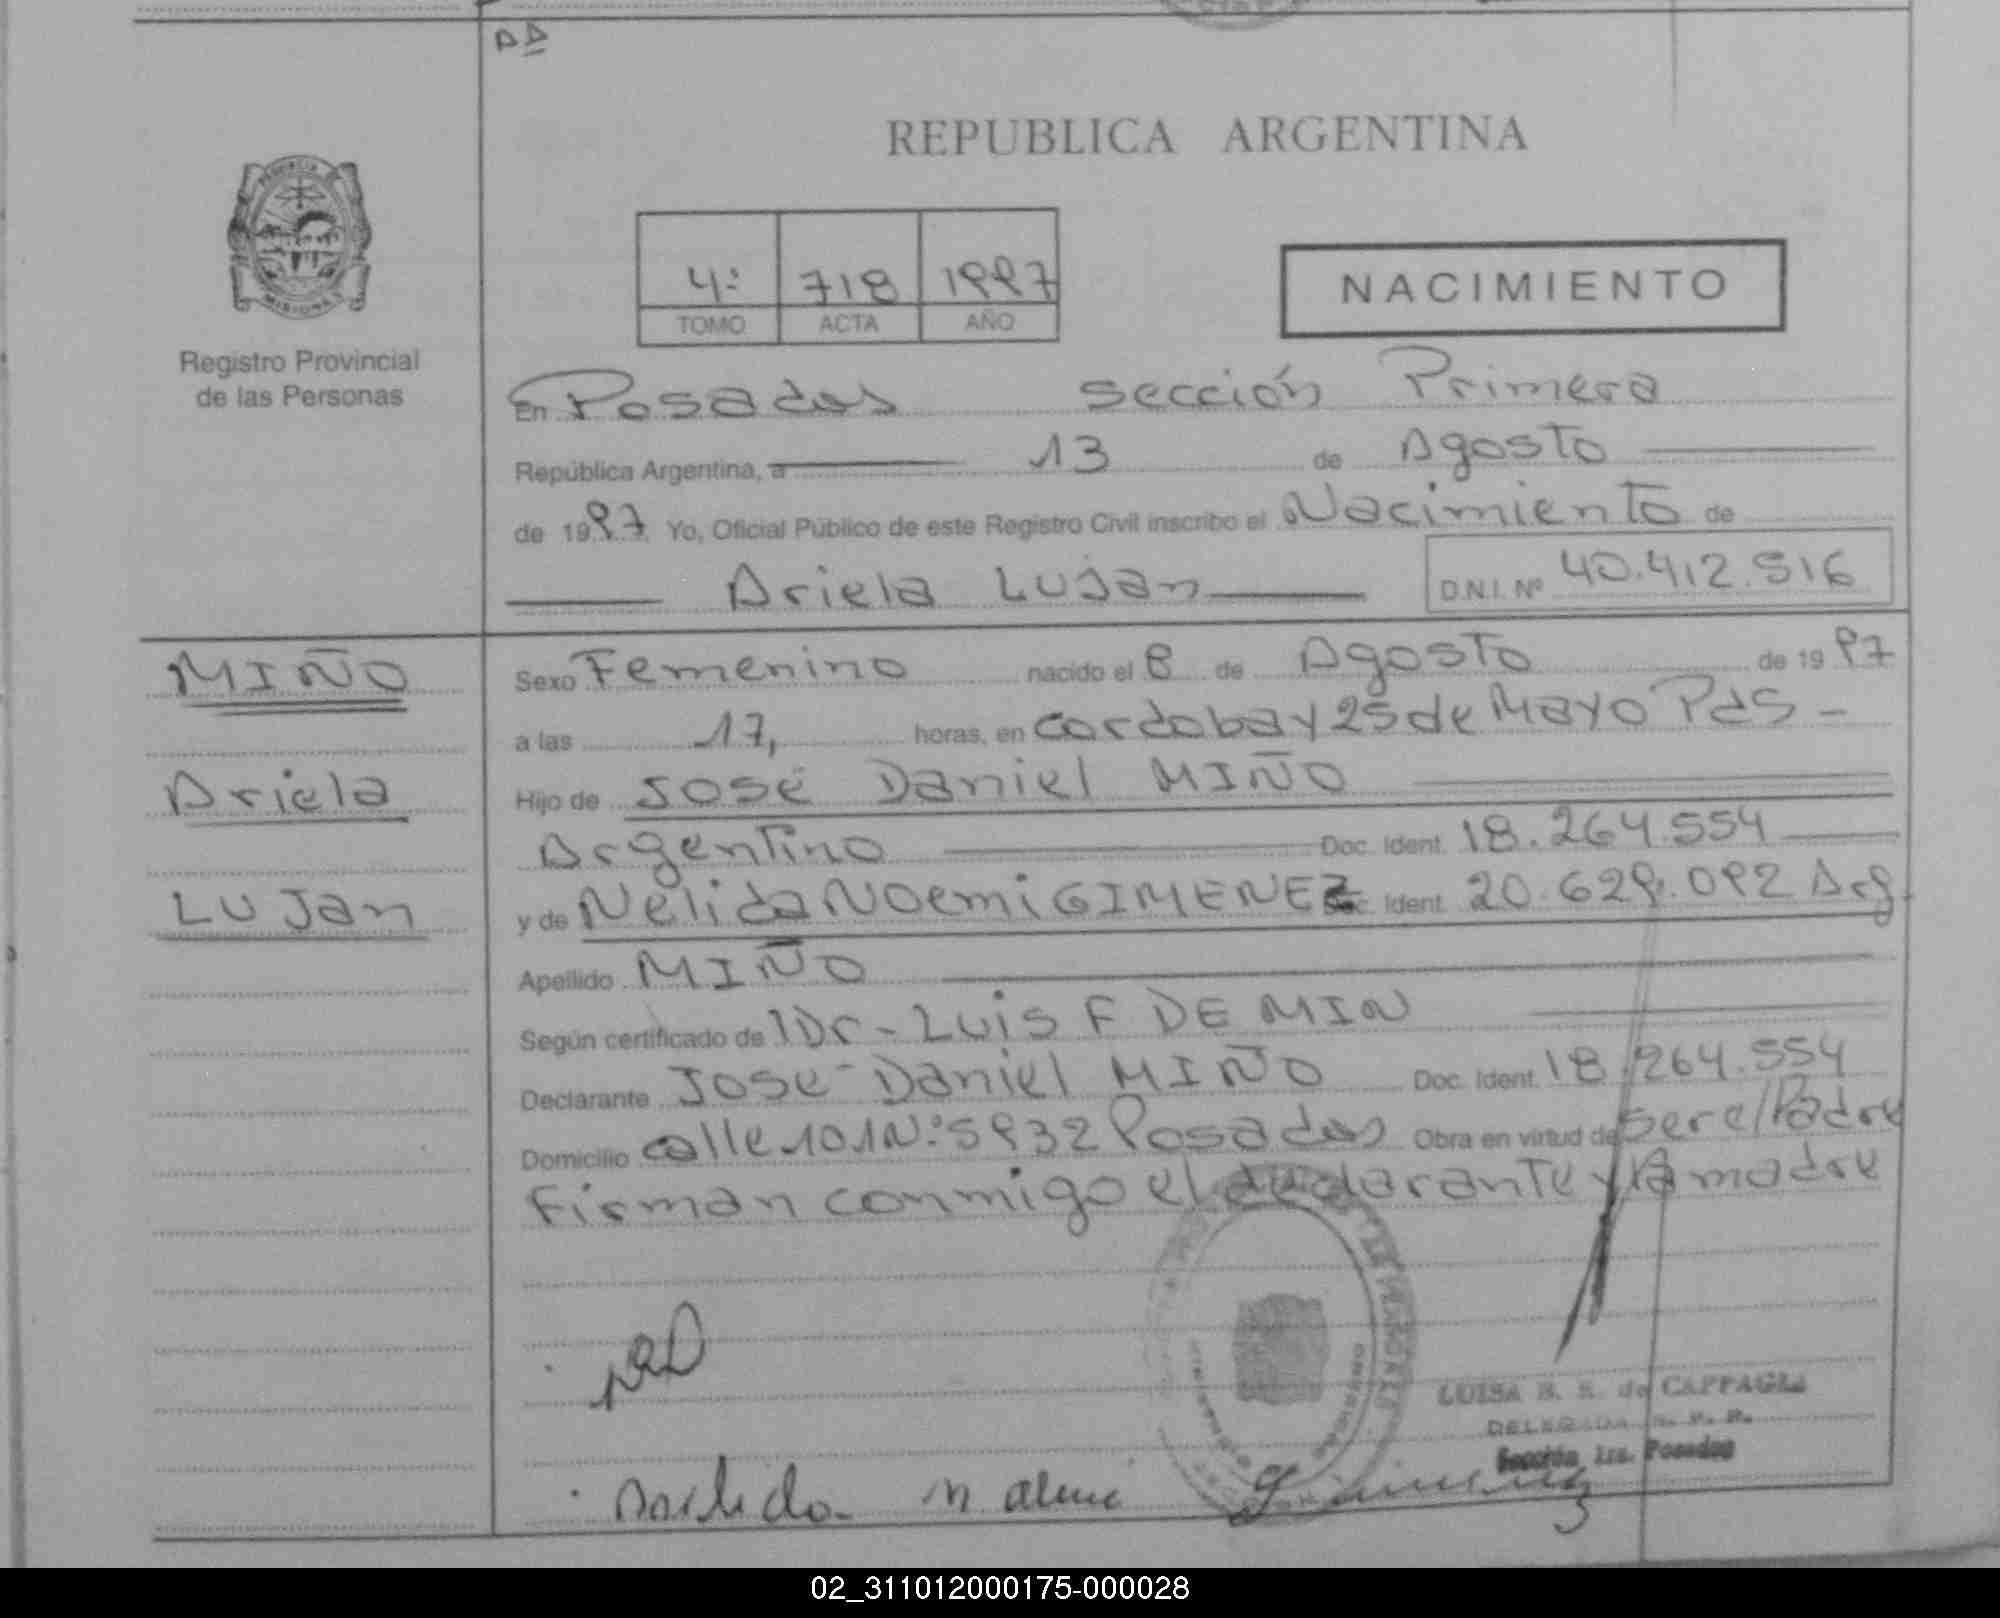 REPUBLICA ARGENTINA
4:
718
1997
TOMO
ACTA
AÑO
NACIMIENTO
MISIONES
Registro Provincial
de las Personas
En Posadas sección Primera
República Argentina, a 13 de Agosto
de 1997 Yo, Oficial Público de este Registro Civil inscribo el Nacimiento de
Ariela Lujan
D.N.I. Nº 40.412.516
MIÑO
Ariela
LUJan
Sexo Femenino nacido el 8 de Agosto de 1997
a las 17, horas, en cordoba y 25 de Mayo Pds -
Hijo de José Daniel MIÑO
Argentino Doc. Ident. 18.264.554
y de Nelida NOemi GIMENEZ Doc. Ident. 20.629.092 Arg.
Apellido MIÑO
Según certificado de Dr - Luis F DE MIN
Declarante Jose Daniel MIÑO Doc. Ident. 18.264.554
Domicilio calle 101 N:º 5932 Posadas Obra en virtud de ser el Padre
Firman conmigo el declarante y la madre
LUISA B. S. de CAPPAGLI
DELEGADA R. P. P.
Sección 1ra. Posadas
02_311012000175-000028